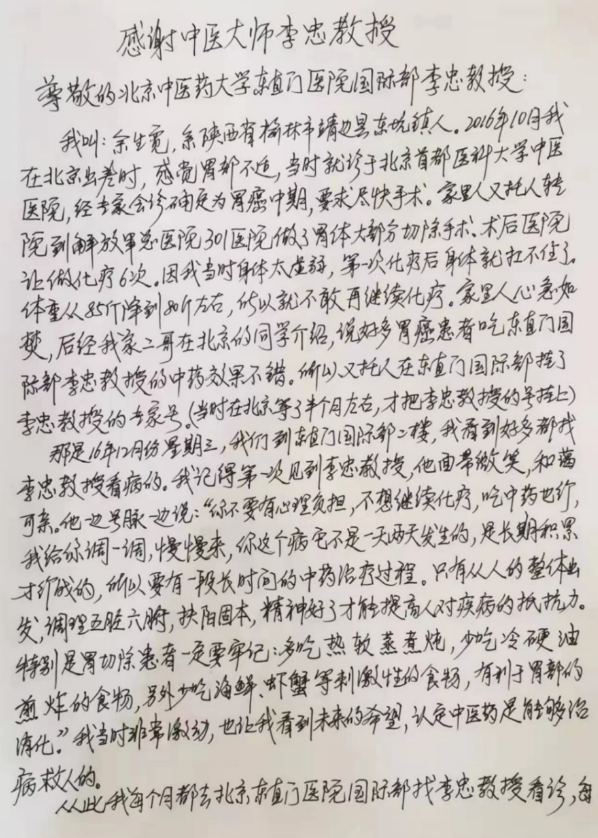 感谢中医大师李忠教授
尊敬的北京中医药大学东直门医院国际部李忠教授：
我叫：余生宽，系陕西省榆林市靖边县东坑镇人。2016年10月我
在北京出差时，感觉胃部不适，当时就诊于北京首都医科大学中医
医院，经专家会诊确定为胃癌中期，要求尽快手术。家里人又托人转
院到解放军总医院301医院做了胃体大部分切除手术、术后医院
让做化疗6次。因我当时身体太虚弱，第一次化疗后身体就扛不住了。
体重从85斤降到80斤左右，所以就不敢再继续化疗。家里人心急如
焚，后经我家二哥在北京的同学介绍，说好多胃癌患者吃东直门国
际部李忠教授的中药效果不错。所以又托人在东直门国际部挂了
李忠教授的专家号。(当时在北京等了半个月左右，才把李忠教授的号挂上)
那是16年12月份星期三，我们到东直门国际部二楼，我看到好多都找
李忠教授看病的。我记得第一次见到李忠教授，他面带微笑，和蔼
可亲。他一边号脉一边说：“你不要有心理负担，不想继续化疗，吃中药也行，
我给你调一调，慢慢来，你这个病它不是一天两天发生的，是长期积累
才行成的，所以要有一段长时间的中药治疗过程。只有从人的整体出
发，调理五脏六腑，扶阳固本，精神好了才能提高人对疾病的抵抗力。
特别是胃切除患者一定要牢记：多吃热软蒸煮炖，少吃冷硬油
煎炸的食物，另外少吃海鲜、虾蟹等刺激性的食物，有利于胃部的
消化。”我当时非常激动，也让我看到未来的希望，认定中医药是能够治
病救人的。
从此我每个月都去北京东直门医院国际部找李忠教授看诊，每